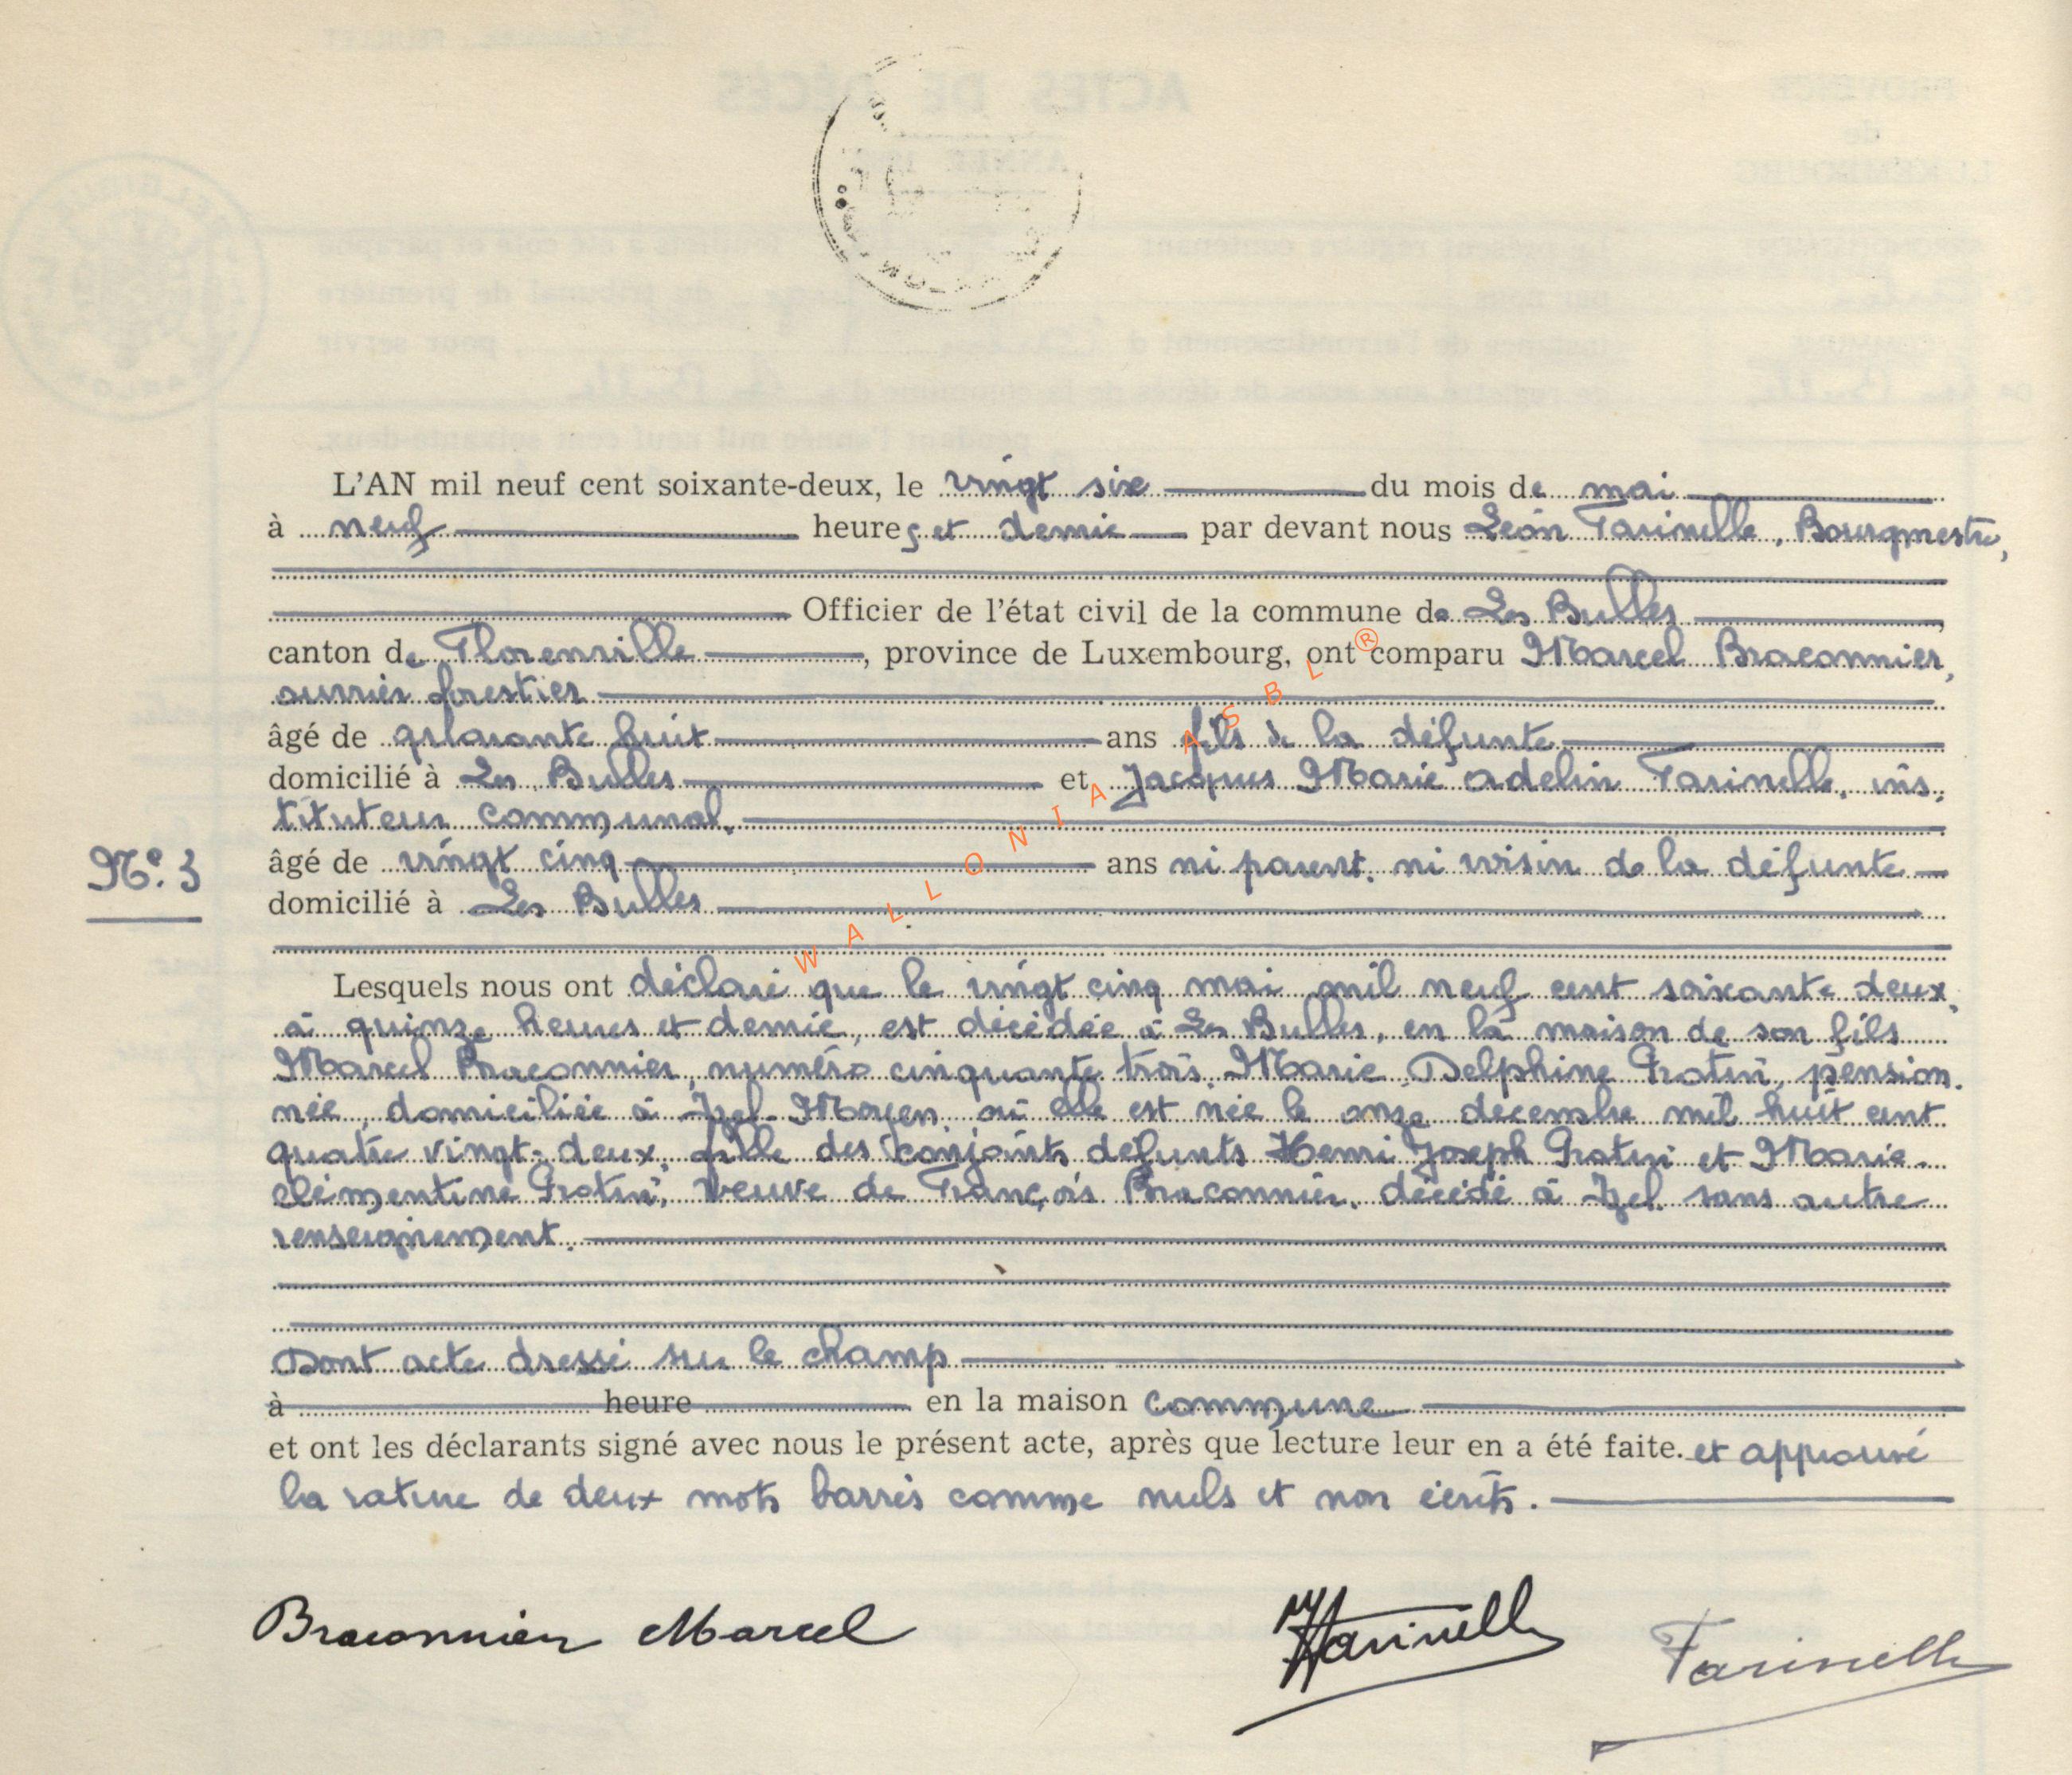 L'AN mil neuf cent soixante-deux, le vingt six du mois de mai
à neuf heures et demie par devant nous Léon Farinelle, Bourgmestre,
Officier de l'état civil de la commune de Les Bulles,
canton de Florenville, province de Luxembourg, ont comparu Marcel Braconnier,
ouvrier forestier
âgé de quarante huit ans fils de la défunte
domicilié à Les Bulles et Jacques Marie Adelin Farinelle, ins-
tituteur communal,
N° 3
âgé de vingt cinq ans ni parent, ni voisin de la défunte
domicilié à Les Bulles
WALLONIA ASBL ®
Lesquels nous ont déclaré que le vingt cinq mai mil neuf cent soixante deux,
à quinze heures et demie, est décédée à Les Bulles, en la maison de son fils
Marcel Braconnier, numéro cinquante trois, Marie Delphine Protin, pension-
née, domiciliée à Izel-Moyen, où elle est née le onze décembre mil huit cent
quatre vingt-deux, fille des conjoints défunts Henri Joseph Protin et Marie
Clémentine Protin, veuve de François Braconnier, décédé à Izel sans autre
renseignement.
Dont acte dressé sur le champ
à heure en la maison commune
et ont les déclarants signé avec nous le présent acte, après que lecture leur en a été faite. et approuvé
la rature de deux mots barrés comme nuls et non écrits.
Braconnier Marcel Farinelle Farinelle